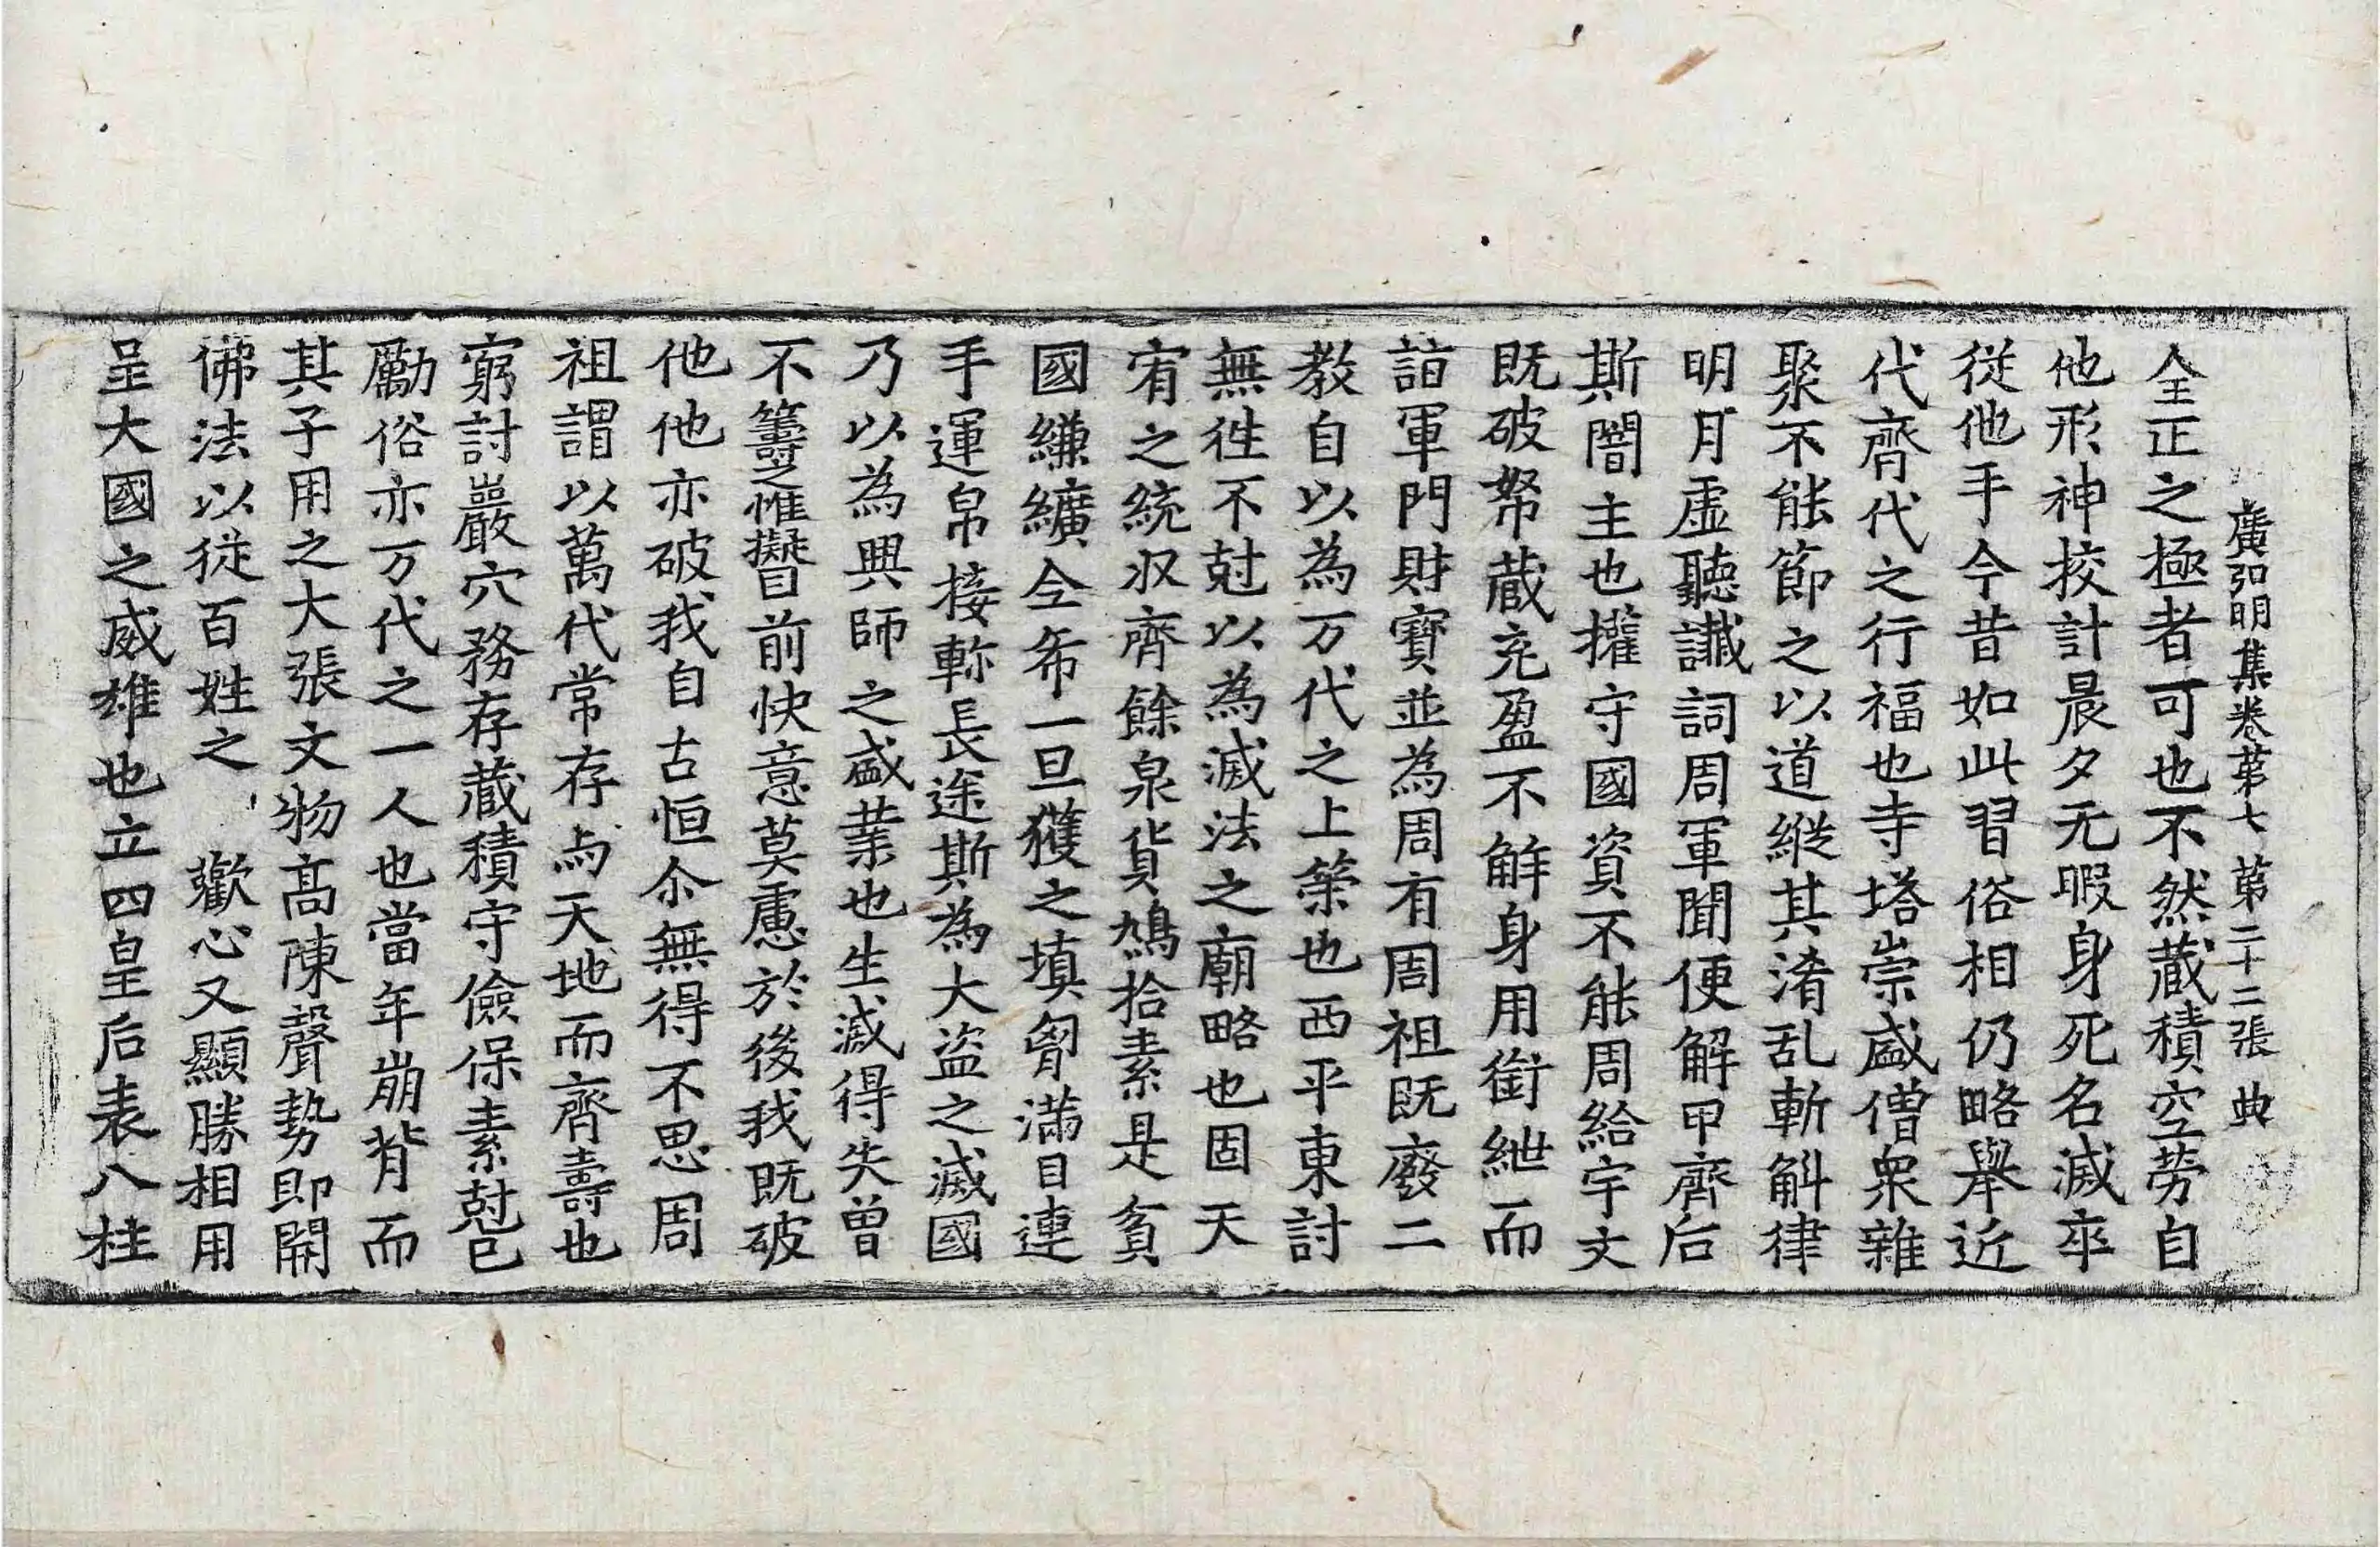 廣弘明集卷第七　第二十二張　典
全正之極者可也不然蔵積空勞自
他形神挍計晨夕无暇身死名滅卒
従他手今昔如此習俗相仍略舉近
代齊代之行福也寺塔崇盛僧衆雜
聚不能節之以道縱其淆乱斬斛律
明月虚聽讖詞周軍聞便解甲齊后
斯闇主也攉守國資不能周給宇文
既破帑蔵充盈不解身用銜紲而
詣軍門財寶並為周有周祖既廢二
教自以為万代之上筞也西平東討
無徃不尅以為滅法之廟略也固天
宥之統収齊餘泉貨鳩拾素是貧
國縑纊全希一旦獲之填胷滿目連
手運帛接軫長途斯為大盜之滅國
乃以為興師之盛業也生滅得失曽
不籌之惟擬目前快意莫慮於後我既破
他他亦破我自古恒尒無得不思周
祖謂以萬代常存与天地而齊壽也
窮討巖穴務存蔵積守儉保素尅已
勵俗亦万代之一人也當年崩背而
其子用之大張文物髙陳聲勢即開
佛法以従百姓之　歡心又顯勝相用
呈大國之威雄也立四皇后表八柱